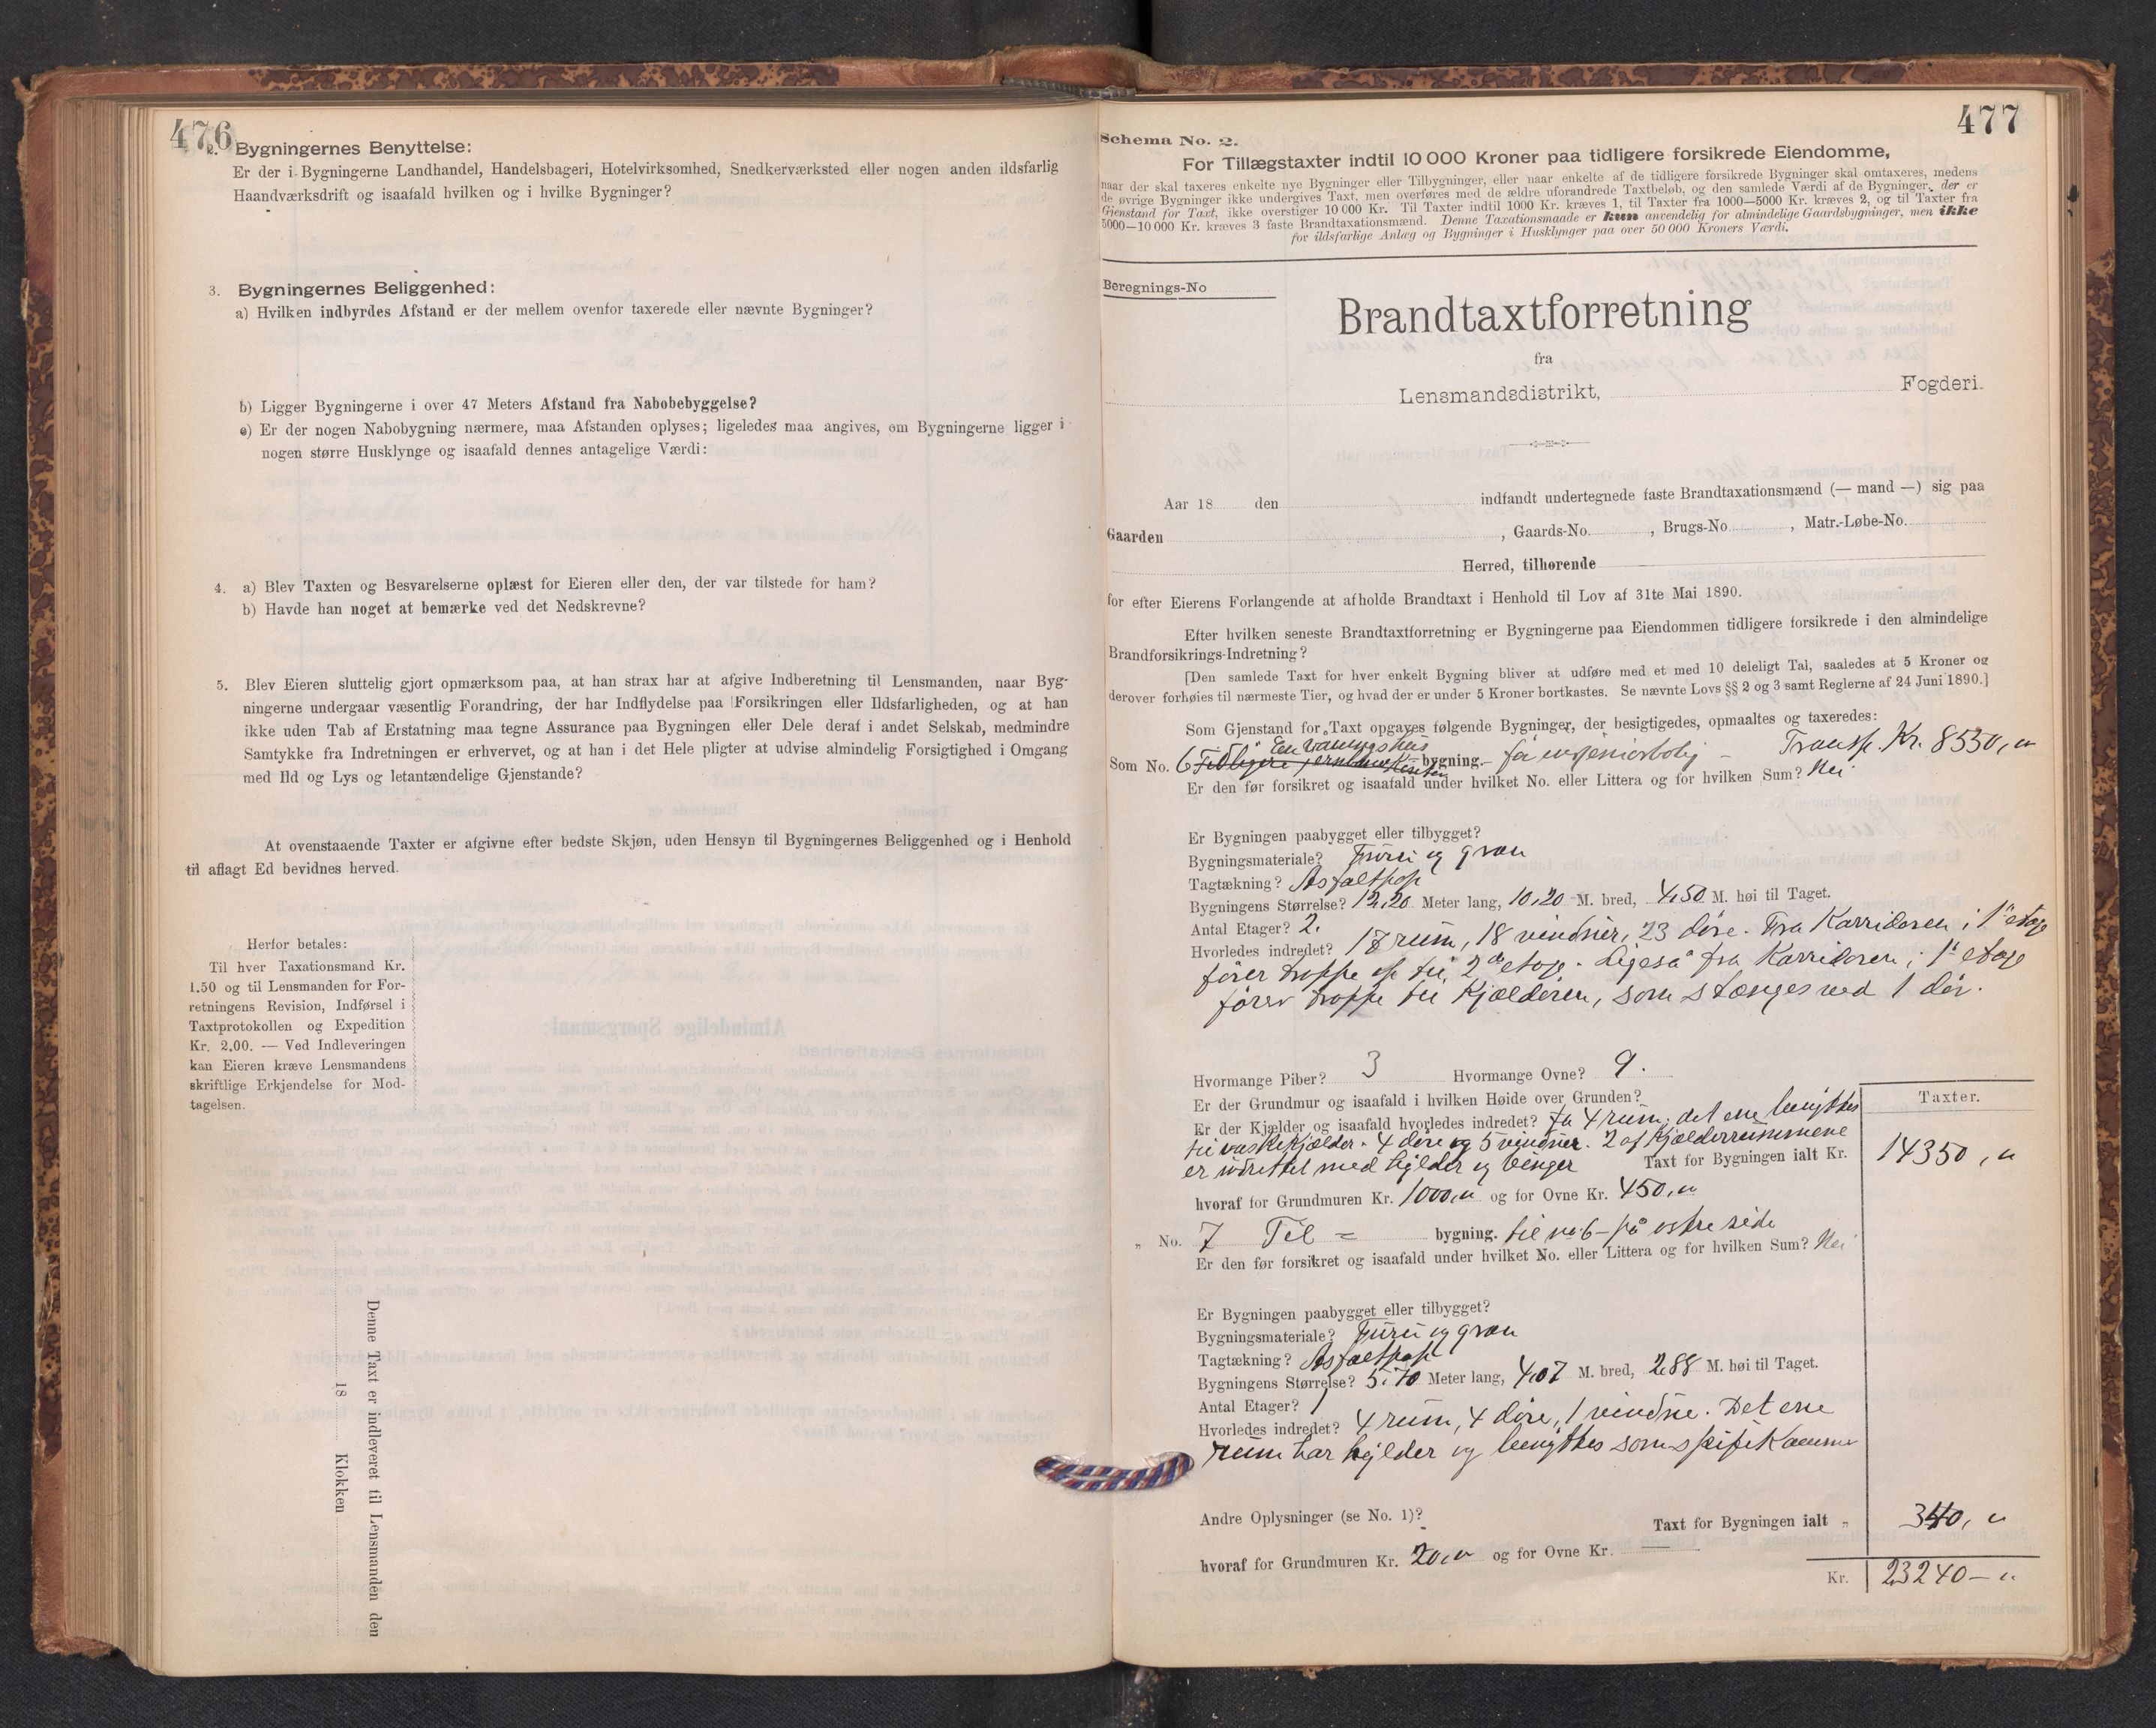 476
2. Bygningernes Benyttelse:
Er der i Bygningerne Landhandel, Handelsbageri, Hotelvirksomhed, Snedkerværksted eller nogen anden ildsfarlig
Haandværksdrift og isaafald hvilken og i hvilke Bygninger?
3. Bygningernes Beliggenhed:
a) Hvilken indbyrdes Afstand er der mellem ovenfor taxerede eller nævnte Bygninger?
b) Ligger Bygningerne i over 47 Meters Afstand fra Nabobebyggelse?
c) Er der nogen Nabobygning nærmere, maa Afstanden oplyses; ligeledes maa angives, om Bygningerne ligger i
nogen større Husklynge og isaafald dennes antagelige Værdi:
4. a) Blev Taxten og Besvarelserne oplæst for Eieren eller den, der var tilstede for ham?
b) Havde han noget at bemærke ved det Nedskrevne?
5. Blev Eieren sluttelig gjort opmærksom paa, at han strax har at afgive Indberetning til Lensmanden, naar Byg-
ningerne undergaar væsentlig Forandring, der har Indflydelse paa Forsikringen eller Ildsfarligheden, og at han
ikke uden Tab af Erstatning maa tegne Assurance paa Bygningen eller Dele deraf i andet Selskab, medmindre
Samtykke fra Indretningen er erhvervet, og at han i det Hele pligter at udvise almindelig Forsigtighed i Omgang
med Ild og Lys og letantændelige Gjenstande?
At ovenstaaende Taxter er afgivne efter bedste Skjøn, uden Hensyn til Bygningernes Beliggenhed og i Henhold
til aflagt Ed bevidnes herved.
Herfor betales:
Til hver Taxationsmand Kr.
1.50 og til Lensmanden for For-
retningens Revision, Indførsel i
Taxtprotokollen og Expedition
Kr. 2.00. — Ved Indleveringen
kan Eieren kræve Lensmandens
skriftlige Erkjendelse for Mod-
tagelsen.
Denne Taxt er indleveret til Lensmanden den
18 Klokken
477
Schema No. 2.
For Tillægstaxter indtil 10 000 Kroner paa tidligere forsikrede Eiendomme,
naar der skal taxeres enkelte nye Bygninger eller Tilbygninger, eller naar enkelte af de tidligere forsikrede Bygninger skal omtaxeres, medens
de øvrige Bygninger ikke undergives Taxt, men overføres med de ældre uforandrede Taxtbeløb, og den samlede Værdi af de Bygninger, der er
Gjenstand for Taxt, ikke overstiger 10 000 Kr. Til Taxter indtil 1000 Kr. kræves 1, til Taxter fra 1000—5000 Kr. kræves 2, og til Taxter fra
5000—10 000 Kr. kræves 3 faste Brandtaxationsmænd. Denne Taxationsmaade er kun anvendelig for almindelige Gaardsbygninger, men ikke
for ildsfarlige Anlæg og Bygninger i Husklynger paa over 50 000 Kroners Værdi.
Beregnings-No
Brandtaxtforretning
fra
Lensmandsdistrikt, Fogderi.
Aar 18 den indfandt undertegnede faste Brandtaxationsmænd (— mand —) sig paa
Gaarden , Gaards-No. , Brugs-No. , Matr.-Løbe-No.
Herred, tilhørende
for efter Eierens Forlangende at afholde Brandtaxt i Henhold til Lov af 31te Mai 1890.
Efter hvilken seneste Brandtaxtforretning er Bygningerne paa Eiendommen tidligere forsikrede i den almindelige
Brandforsikrings-Indretning?
[Den samlede Taxt for hver enkelt Bygning bliver at udføre med et med 10 deleligt Tal, saaledes at 5 Kroner og
derover forhøies til nærmeste Tier, og hvad der er under 5 Kroner bortkastes. Se nævnte Lovs §§ 2 og 3 samt Reglerne af 24 Juni 1890.]
Som Gjenstand for Taxt opgaves følgende Bygninger, der besigtigedes, opmaaltes og taxeredes:
En Vaaningshus Transp. Kr. 8550,"
Som No. 6 bygning. ingeniørbolig
Er den før forsikret og isaafald under hvilket No. eller Littera og for hvilken Sum? Nei
Er Bygningen paabygget eller tilbygget?
Bygningsmateriale? Furu og gran
Tagtækning? Asfaltpap
Bygningens Størrelse? 12,20 Meter lang, 10,20 M. bred, 4,50 M. høi til Taget.
Antal Etager? 2.
Hvorledes indredet? 17 rum, 18 vinduer, 23 døre. Fra Korridoren i 1ste etage
fører trappe op til 2den etage. Ligeså fra Korridoren i 1ste etage
fører trappe til Kjælderen, som stænges ved 1 dør.
Hvormange Piber? 3 Hvormange Ovne? 9.
Er der Grundmur og isaafald i hvilken Høide over Grunden?
Er der Kjælder og isaafald hvorledes indredet? Ja 4 rum, det ene benyttes
til vaskekjælder. 4 døre og 5 vinduer. 2 af Kjælderrummene
er indrettet med hylder og binger Taxt for Bygningen ialt Kr.
Taxter.
14350,"
hvoraf for Grundmuren Kr. 1000," og for Ovne Kr. 450,"
" No. 7 Til = bygning. til no 6 - på østre side
Er den før forsikret og isaafald under hvilket No. eller Littera og for hvilken Sum? Nei
Er Bygningen paabygget eller tilbygget?
Bygningsmateriale? Furu og gran
Tagtækning? Asfaltpap
Bygningens Størrelse? 5,70 Meter lang, 4,07 M. bred, 2,88 M. høi til Taget.
Antal Etager? 1
Hvorledes indredet? 4 rum, 4 døre, 1 vindue. Det ene
rum har hylder og benyttes som spisekammer
Andre Oplysninger (se No. 1)? Taxt for Bygningen ialt " 340,"
hvoraf for Grundmuren Kr. 20," og for Ovne Kr. —
Kr. 23240 - "